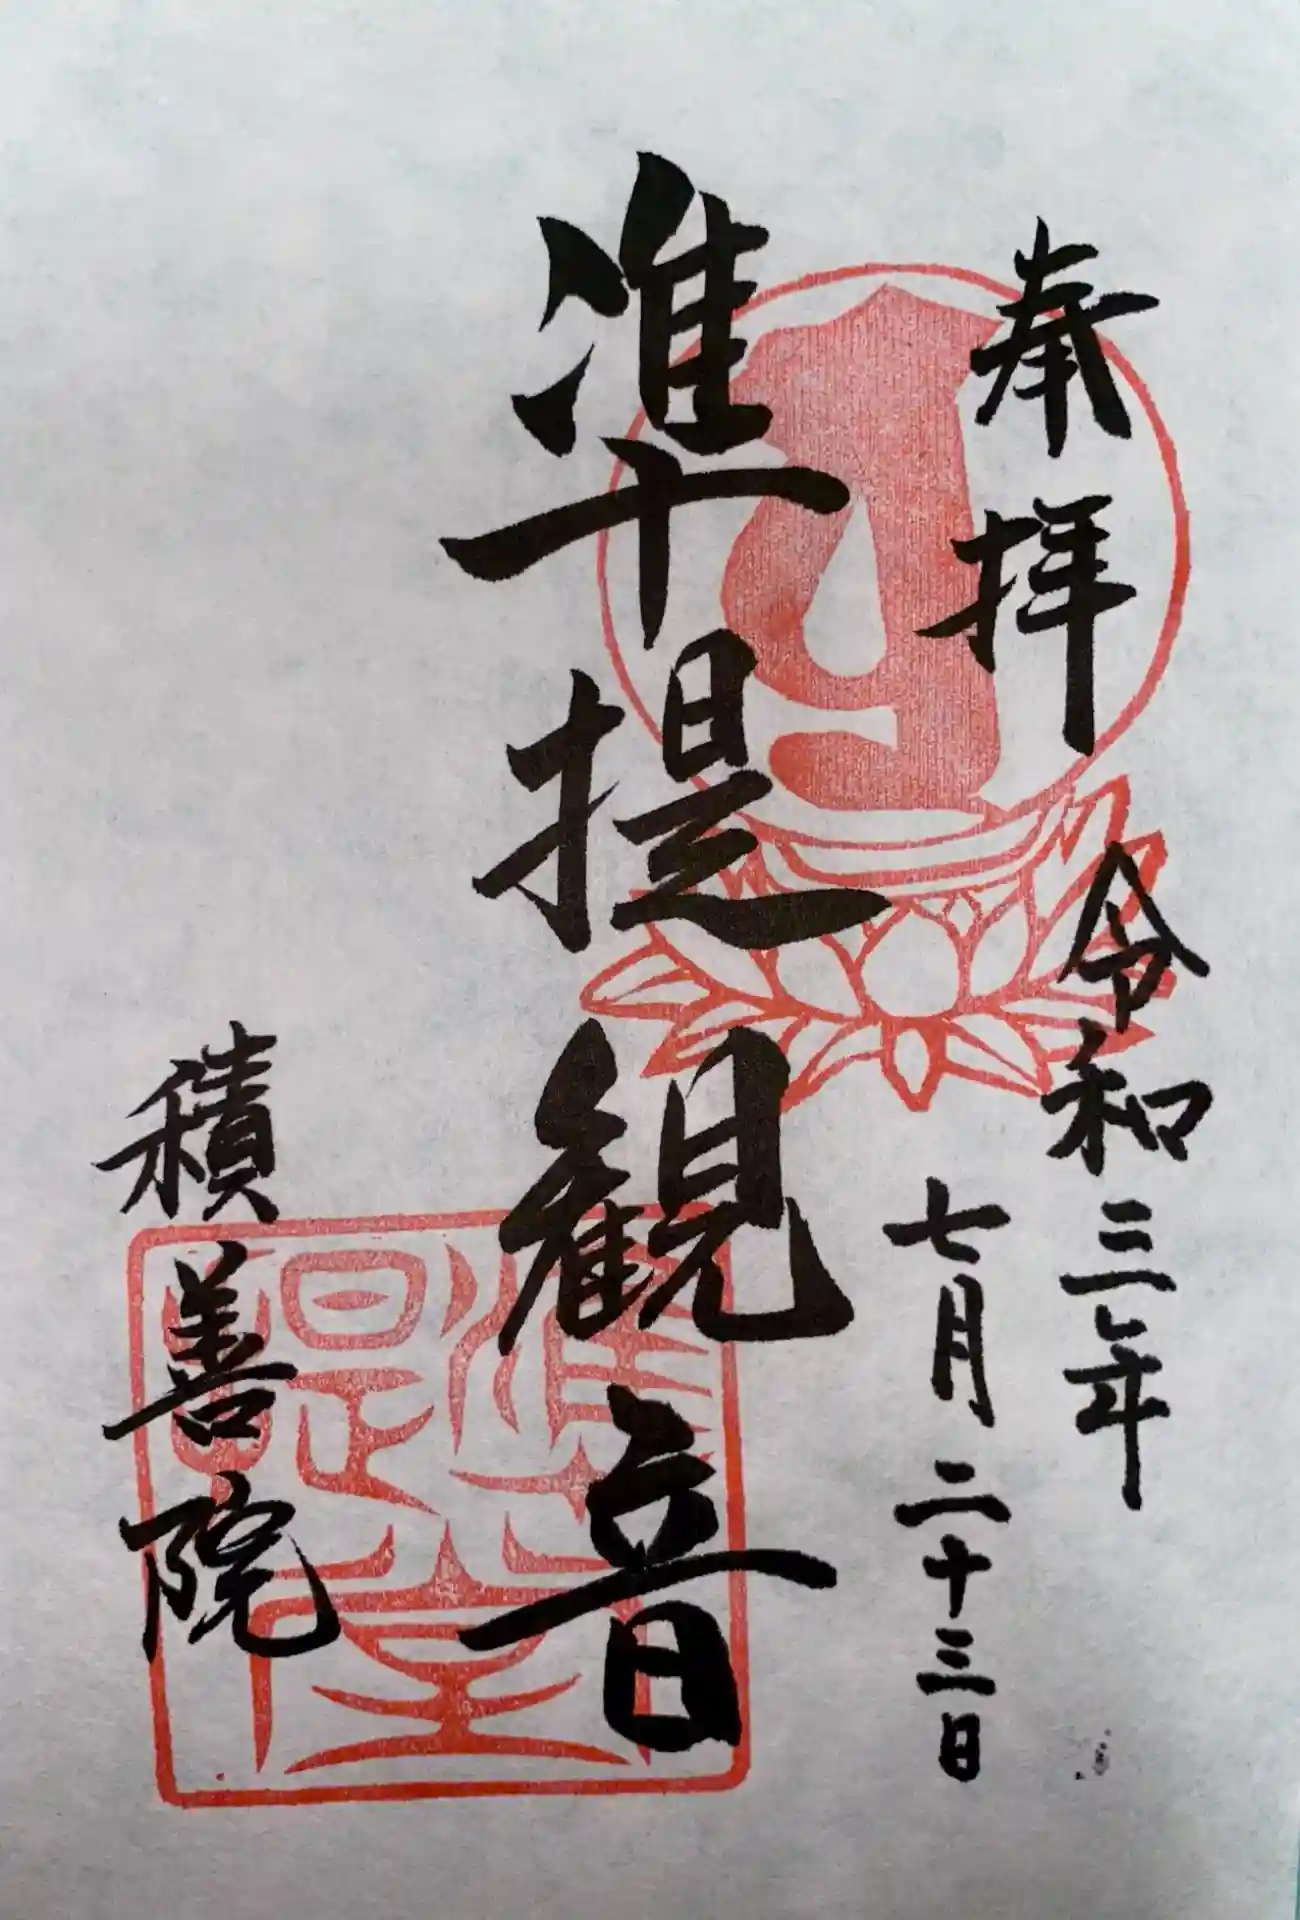 奉拝
令和三年
七月二十三日
准提観音
積善院
准提堂